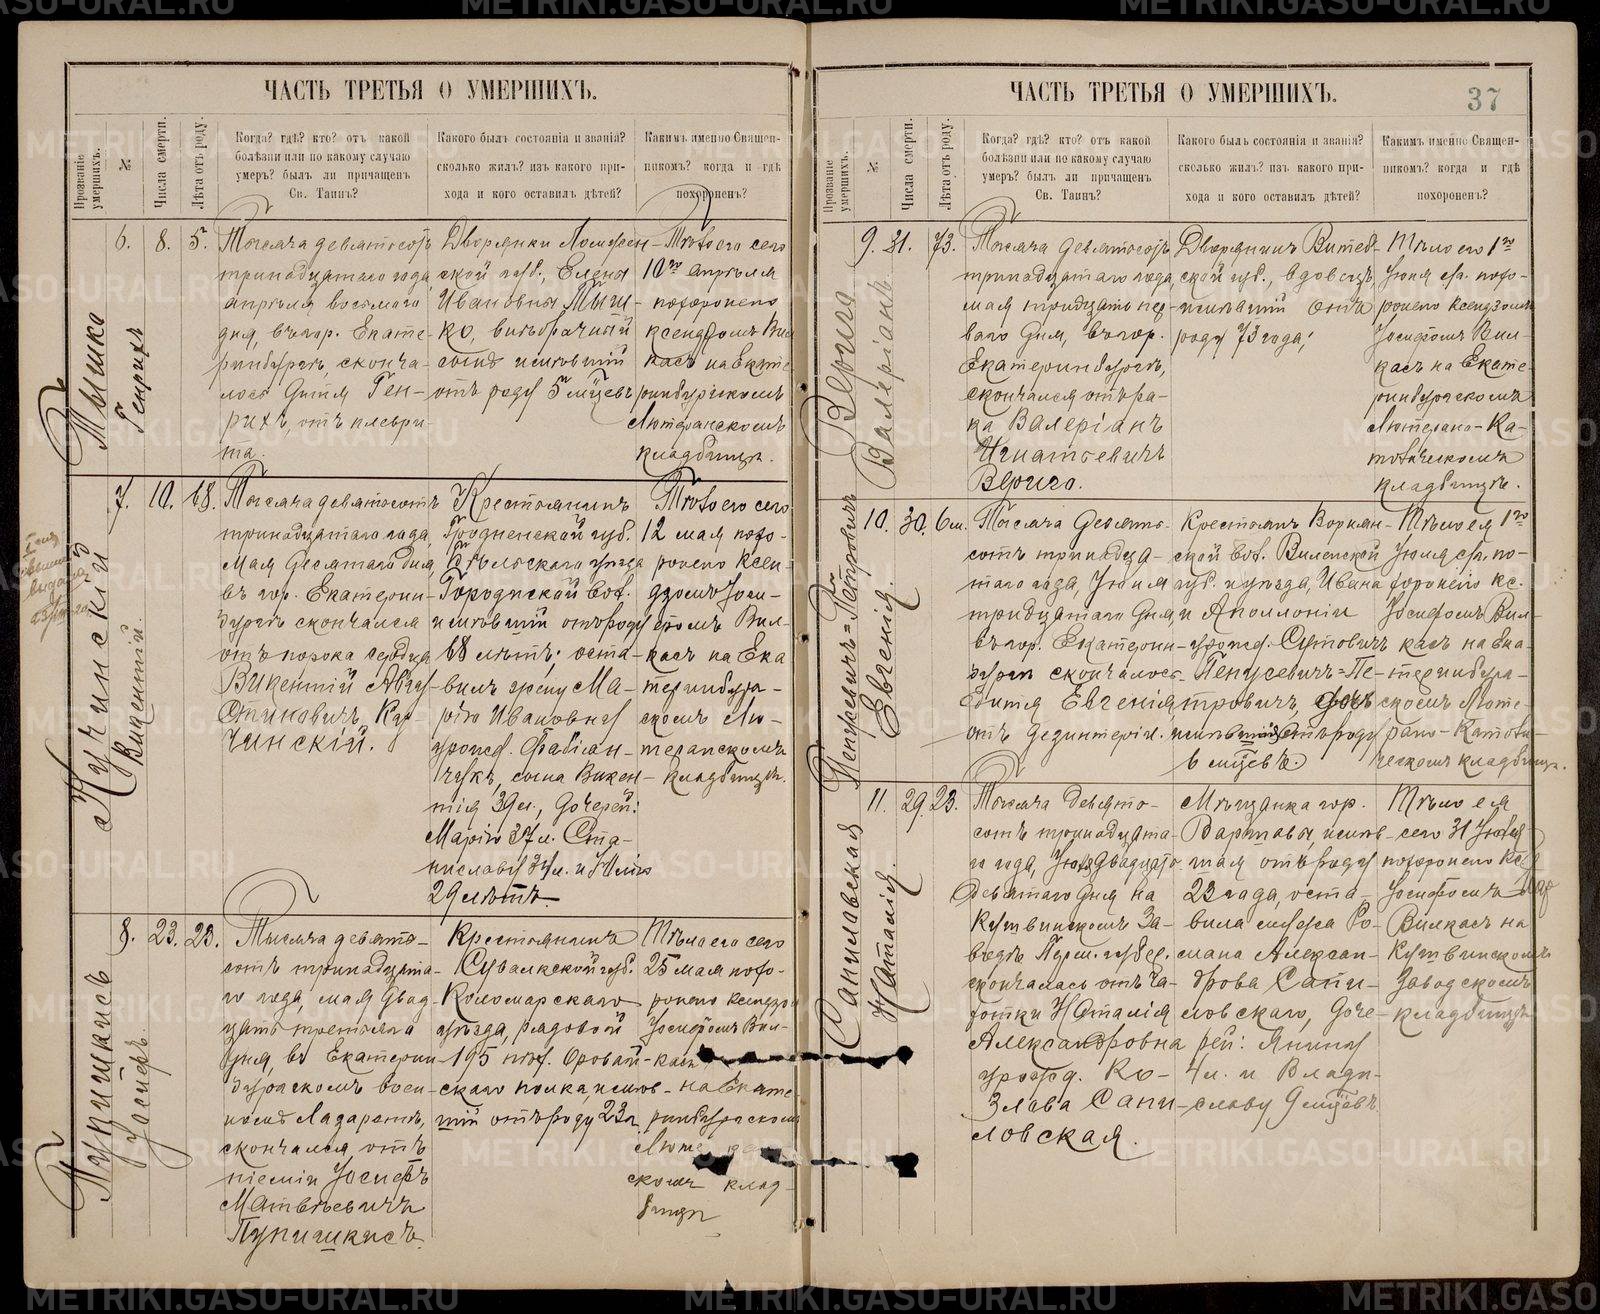 ЧАСТЬ ТРЕТЬЯ О УМЕРШИХЪ.
Прозваніе умершихъ.
№
Числа смерти.
Лѣта отъ роду.
Когда? гдѣ? кто? отъ какой
болѣзни или по какому случаю
умеръ? былъ ли причащенъ
Св. Таинъ?
Какого былъ состоянія и званій?
сколько жилъ? изъ какого при-
хода и кого оставилъ дѣтей?
Какимъ именно Священ-
никомъ? когда и гдѣ
похороненъ?
Тышка
Генрихъ
6. 8. 5.
Тысяча девятьсотъ
тринадцатаго года
апрѣля восьмого
дня, въ гор. Екате-
ринбургѣ, сконча-
лось дитя Ген-
рихъ, отъ плеври-
та.
Дворянки Ломжен-
ской губ., Елены
Ивановны Тыш-
ко, внѣбрачный
сынъ имѣвшій
отъ роду 5 мцевъ
Тѣло его сего
10го апрѣля
похоронено
ксендзомъ Вил
касъ на Екате
ринбургскомъ
Лютеранскомъ
кладбищѣ.
Кучинскій
Викентій.
7. 10. 68.
Тысяча девятьсотъ
тринадцатаго года,
мая десятаго дня,
въ гор. Екатерин-
бургѣ скончался
отъ порока сердца
Викентій Авгу-
стиновичъ Ку-
чинскій.
Крестьянинъ
Гродненской губ.
Бѣльскаго уѣзда
вол.
имѣвшій отъ роду
68 лѣтъ; оста-
вилъ жену Ма-
рію Ивановну
урожд. Фабіан-
чукъ, сына Викен-
тія 39 л., дочерей:
Марію 37 л. Ста-
ниславу 34 л. и Юлію
29 лѣтъ.
Тѣло его сего
12 мая похо-
ронено ксен-
дзомъ Іоси-
фомъ Вил-
касъ на Ека
теринбург-
скомъ Лю-
теранскомъ
кладбищѣ.
Пупишкисъ
Іосифъ.
8. 23. 23.
Тысяча девять-
сотъ тринадцата-
го года, мая двад-
цать третьяго
дня, въ Екатерин
бургскомъ воен-
номъ лазаретѣ,
скончался, отъ
піеміи Іосифъ
Матвѣевичъ
Пупишкисъ.
Крестьянинъ
Сувалкской губ.
уѣзда, рядовой
195 пѣх. Оровай-
скаго полка, имѣв-
шій отъ роду 23 л.
Тѣло его сего
25 мая похо-
ронено ксендзо
Іосифомъ Вил-
касъ
на Екате
ринбургскомъ
Люте
скомъ клад-
бищѣ
ЧАСТЬ ТРЕТЬЯ О УМЕРШИХЪ.
37
Прозваніе умершихъ.
№
Числа смерти.
Лѣта отъ роду.
Когда? гдѣ? кто? отъ какой
болѣзни или по какому случаю
умеръ? былъ ли причащенъ
Св. Таинъ?
Какого былъ состоянія и званій?
сколько жилъ? изъ какого при-
хода и кого оставилъ дѣтей?
Какимъ именно Священ-
никомъ? когда и гдѣ
похороненъ?
Верига
Валеріанъ
9. 31. 73.
Тысяча девятьсотъ
тринадцатаго года
мая тридцать пер-
ваго дня, въ гор.
Екатеринбургѣ,
скончался отъ ра-
ка Валеріанъ
Игнатьевичъ
Верига.
Дворянинъ Витеб-
ской губ., вдовецъ,
имѣвшій отъ
роду 73 года;
Тѣло его 1го
Іюня с/г. похо-
ронено ксендзомъ
Іосифомъ Вил-
касъ на Екате-
ринбургскомъ
Лютерано-Ка-
толическомъ
кладбищѣ.
Евгенія.
10. 30. 6 м.
Тысяча девять-
сотъ тринадца-
таго года, Іюня
тридцатаго дня
въ гор. Екатерин-
бургѣ скончалось
дитя Евгенія,
отъ дезинтеріи.
Крестьянъ Ворнян-
ской вол. Виленской
губ. и уѣзда, Ивана
и Аполлоніи
урожд.
тровичъ, дочь
имѣвшая отъ роду
6 мцевъ.
Тѣло ея 1го
Іюля с/г. по-
хоронено кс.
Іосифомъ Вил-
касъ на Ека-
теринбург-
скомъ Люте-
рано-Католи-
ческомъ кладбищѣ.
Сапиловская
Наталія.
11. 29. 23.
Тысяча девять-
сотъ тринадцата-
го года, Іюля двадцать
девятаго дня на
Кушвинскомъ За-
водѣ Перм. губер.
скончалась отъ ча-
хотки Наталія
Александровна
урожд. Ко-
злова Сапи-
ловская.
Мѣщанка гор.
Варшавы, имѣв-
шая отъ роду
23 года, оста-
вила мужа Ро-
мана Алексан-
дрова Сапи-
ловскаго, доче-
рей: Янину
4 л. и Влади-
славу 9 мцевъ.
Тѣло ея
сего 31 Іюля
похоронено кс.
Іосифомъ
Вилкасъ на
Кушвинскомъ
Заводскомъ
кладбищѣ
METRIKI.GASO-URAL.RU